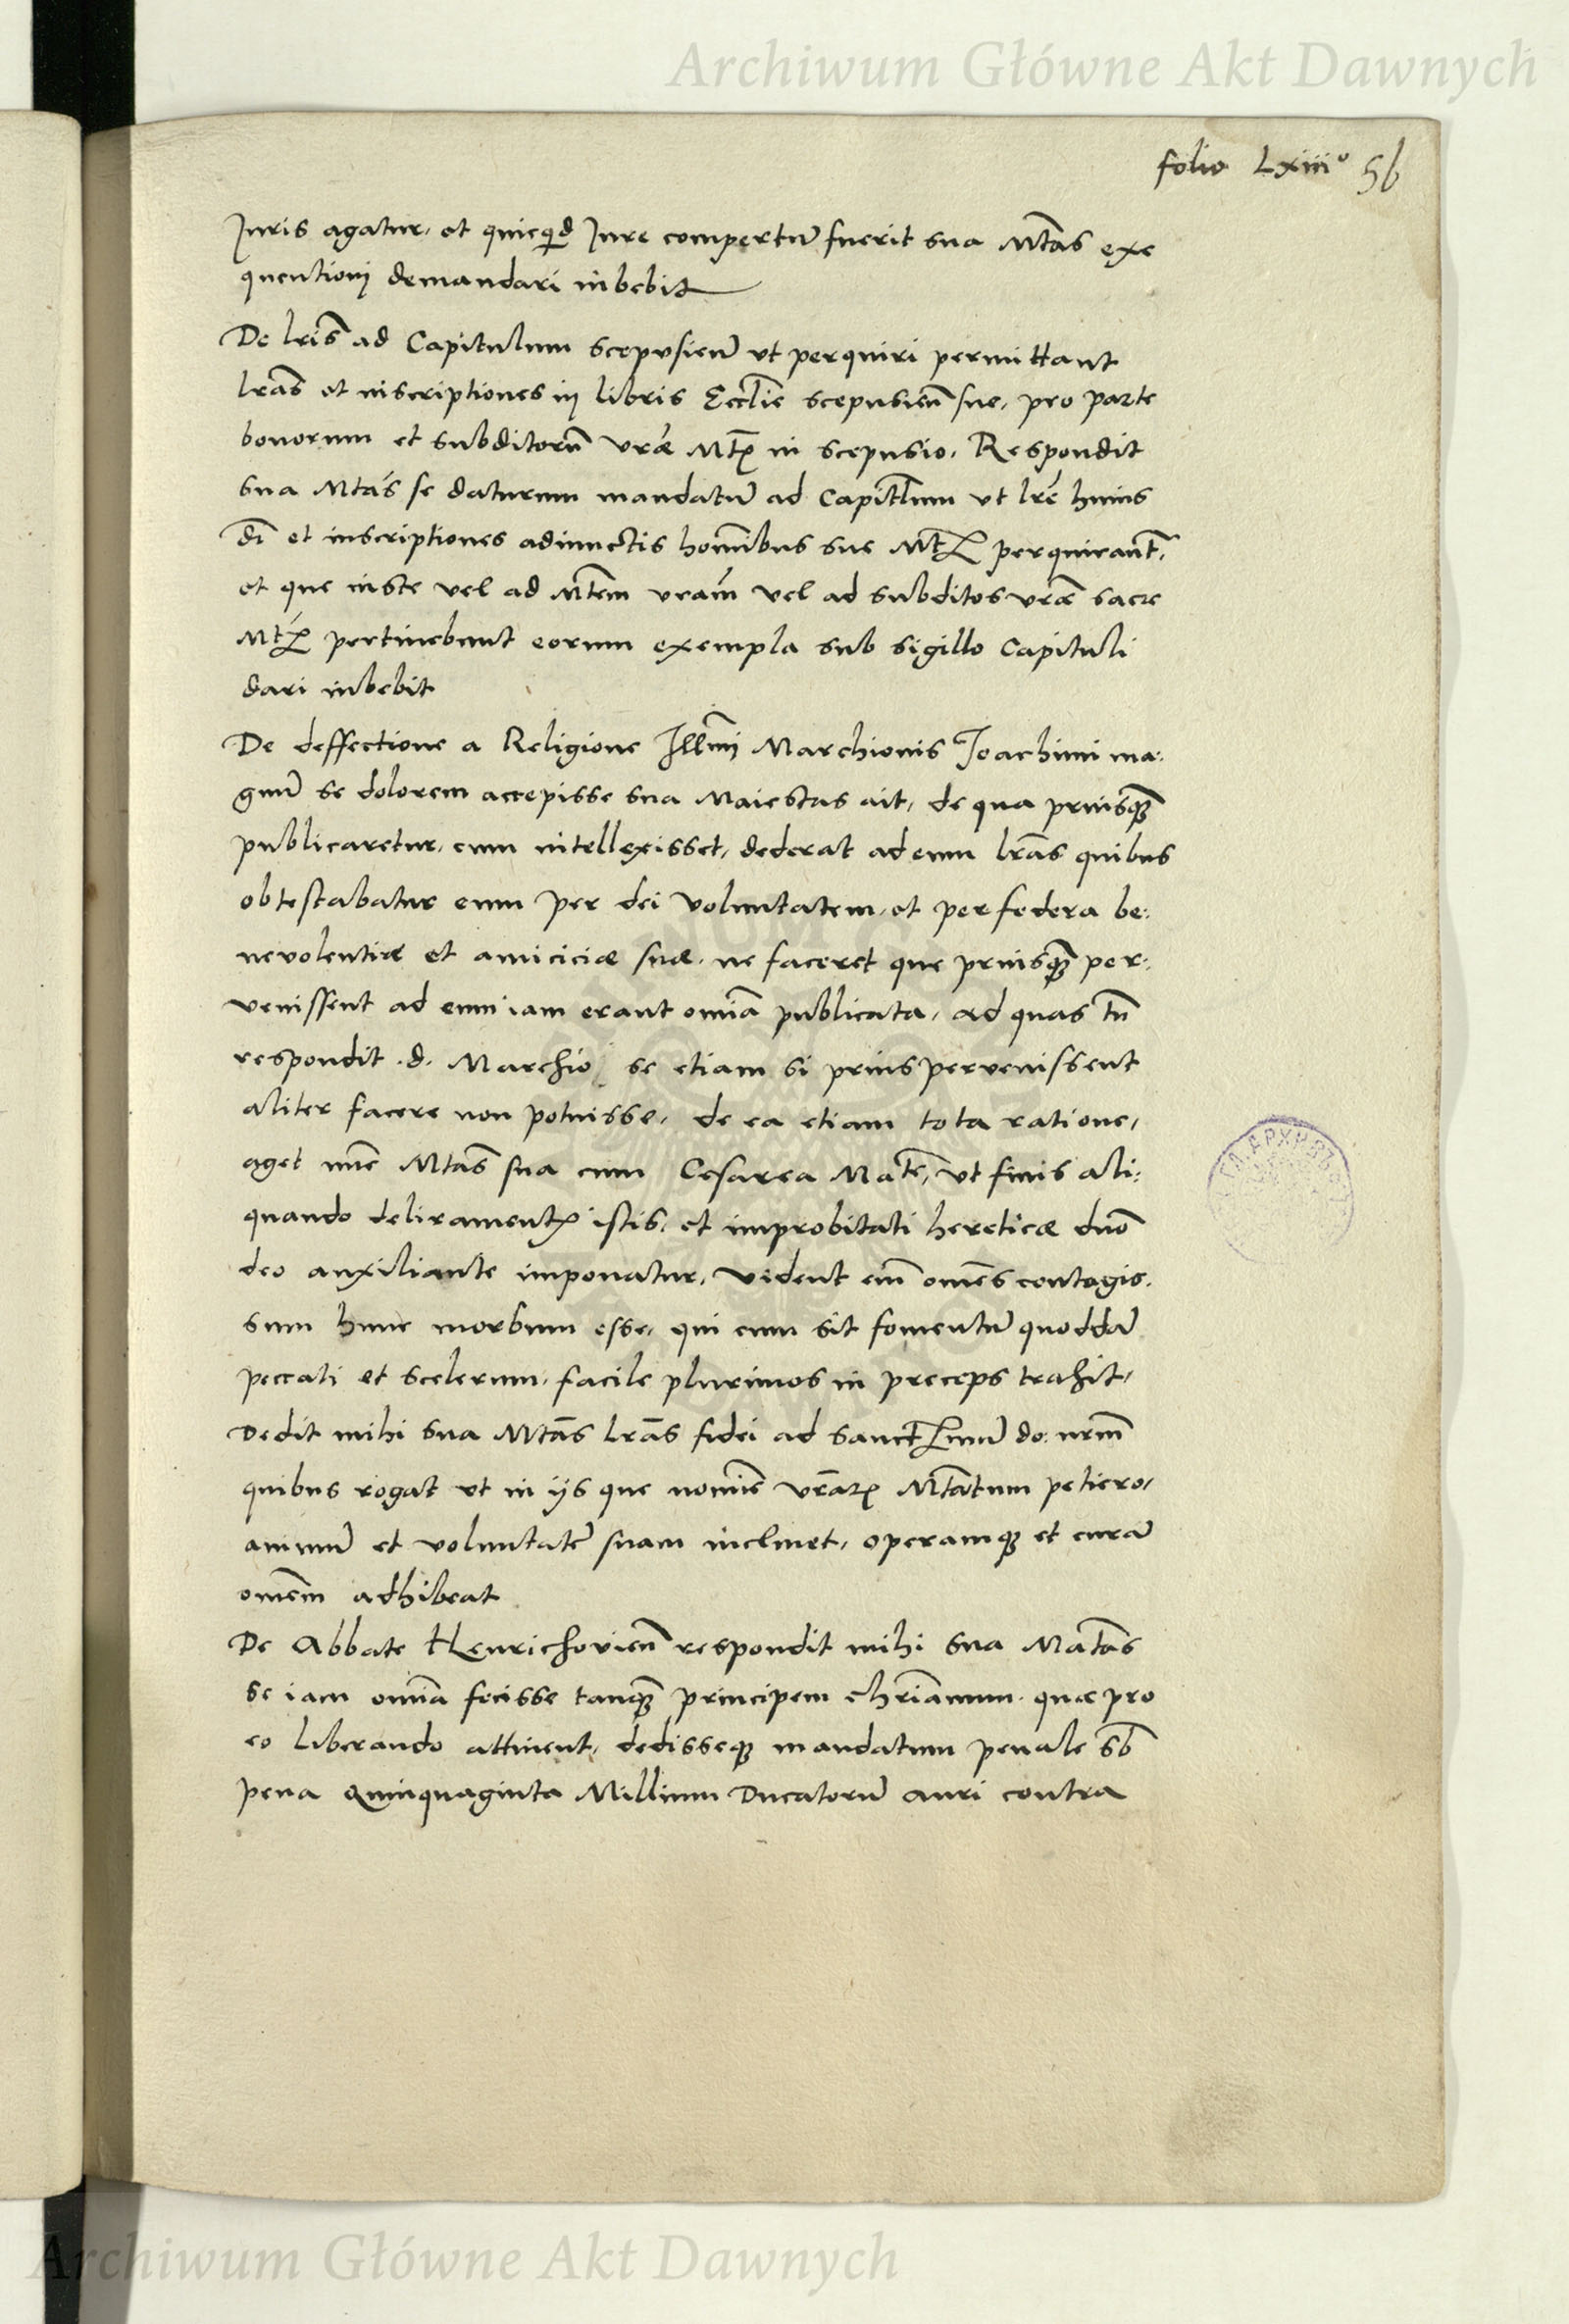 Archiwum Główne Akt Dawnych
folio Lxiiiº 56
Juris agatur, et quicquid Jure compertũ fuerit sua Mtãs exe
quentioni demandari iubebit
De lrĩs ad Capitulum scepusieñ ut perquiri permittant
lrãs et inscriptiones in libris Ecclĩe scepusieñ sue, pro parte
bonorum et subditorũ vrẽ Mtꝭ in scepusio. Respondit
sua Mtãs se daturum mandatũ ad Capitlum ut lrẽ huius
dĩ et inscriptiones adiunctis homĩbus sue Mtꝭ perquirant̃,
et que iuste vel ad Mtẽm vrãm vel ad subditos vrẽ sacre
Mtꝭ pertinebunt eorum exempla sub sigillo Capituli
dari iubebit
De deffectione a Religione Illm̃i Marchionis Joachimi ma:
gnũ se dolorem accepisse sua Maiestas ait, de qua priusqꝫ
publicaretur, cum intellexisset, dederat ad eum lrãs quibus
obtestabatur eum per dei voluntatem, et per federa be:
nevolentiæ et amiciciæ suæ, ne faceret que priusqꝫ per:
venissent ad eum iam erant omĩa publicata, ad quas tñ
respondit .d. Marchio se etiam si prius pervenissent
aliter facere non potuisse, de ea etiam tota ratione,
aget nũc Mtãs sua cum Cesarea Matẽ, ut finis ali:
quando deliramentꝭ istis, et improbitati hereticæ dño
deo auxiliante imponatur, vident em̃ omẽs contagio.
sum hunc morbum esse, qui cum sit fomentũ quoddã
peccati et scelerum, facile plurimos in preceps trahit,
Dedit mihi sua Mtãs lrãs fidei ad sanctꝭmũ do: nrm̃
quibus rogat ut in ijs que nomĩe vrãꝝ Mtãtum petiero,
animũ et voluntatẽ suam inclinet, operamqꝫ et curã
omẽm adhibeat
De Abbate Henrichovieñ respondit mihi sua Matãs
se iam omĩa fecisse tanqꝫ principem chrĩanum, quæ pro
eo liberando attinent, dedisseqꝫ mandatum penale sb̃
pena Quinquaginta Millium Ducatorũ auri contra
Archiwum Główne Akt Dawnych